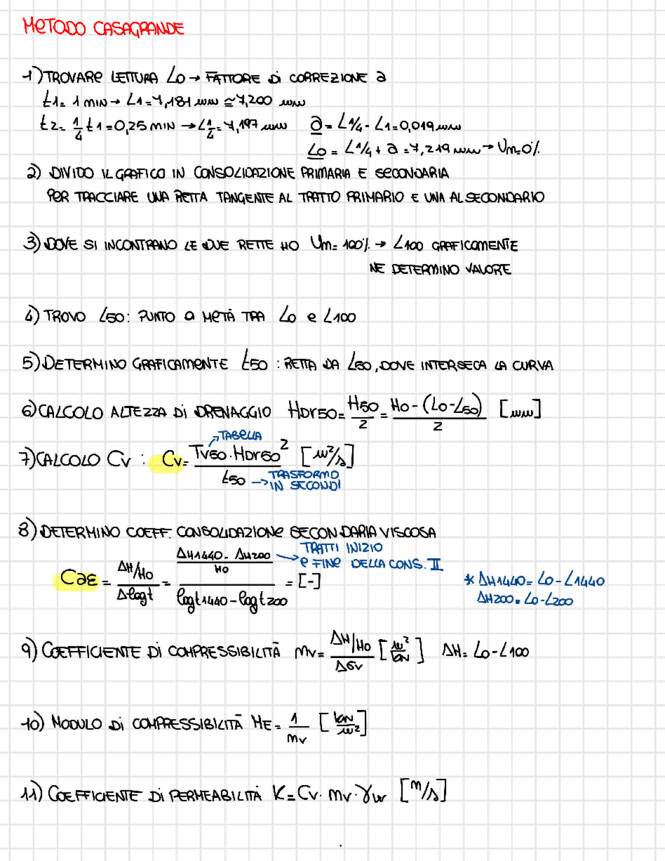 METODO CASAGRANDE
1) TROVARE LETTURA L0 → FATTORE DI CORREZIONE a
t1 = 1 MIN → L1 = 7,181 mm ≃ 7,200 mm
t2 = 1/4 t1 = 0,25 MIN → L1/4 = 7,197 mm   a = L1/4 - L1 = 0,019 mm
L0 = L1/4 + a = 7,219 mm → Um = 0%
2) DIVIDO IL GRAFICO IN CONSOLIDAZIONE PRIMARIA E SECONDARIA
PER TRACCIARE UNA RETTA TANGENTE AL TRATTO PRIMARIO E UNA AL SECONDARIO
3) DOVE SI INCONTRANO LE DUE RETTE HO Um = 100% → L100 GRAFICAMENTE
NE DETERMINO VALORE
4) TROVO L50: PUNTO A METÀ TRA L0 e L100
5) DETERMINO GRAFICAMENTE t50 : RETTA DA L50, DOVE INTERSECA LA CURVA
6) CALCOLO ALTEZZA DI DRENAGGIO HDr50 = H50/2 = H0 - (L0 - L50)/2 [mm]
→ TABELLA
7) CALCOLO Cv : Cv = Tv50 · HDr50²/t50 [m²/s]
→ TRASFORMO
IN SECONDI
8) DETERMINO COEFF. CONSOLIDAZIONE SECONDARIA VISCOSA
Cαε = ΔH/H0 / Δlogt = (ΔH1440 - ΔH200)/H0 / logt1440 - logt200 = [-]
→ TRATTI INIZIO
e FINE DELLA CONS. II
* ΔH1440 = L0 - L1440
ΔH200 = L0 - L200
9) COEFFICIENTE DI COMPRESSIBILITÀ mv = ΔH/H0 / Δσv [m²/kN]   ΔH = L0 - L100
10) MODULO DI COMPRESSIBILITÀ ME = 1/mv [kN/m²]
11) COEFFICIENTE DI PERMEABILITÀ K = Cv · mv · γw [m/s]